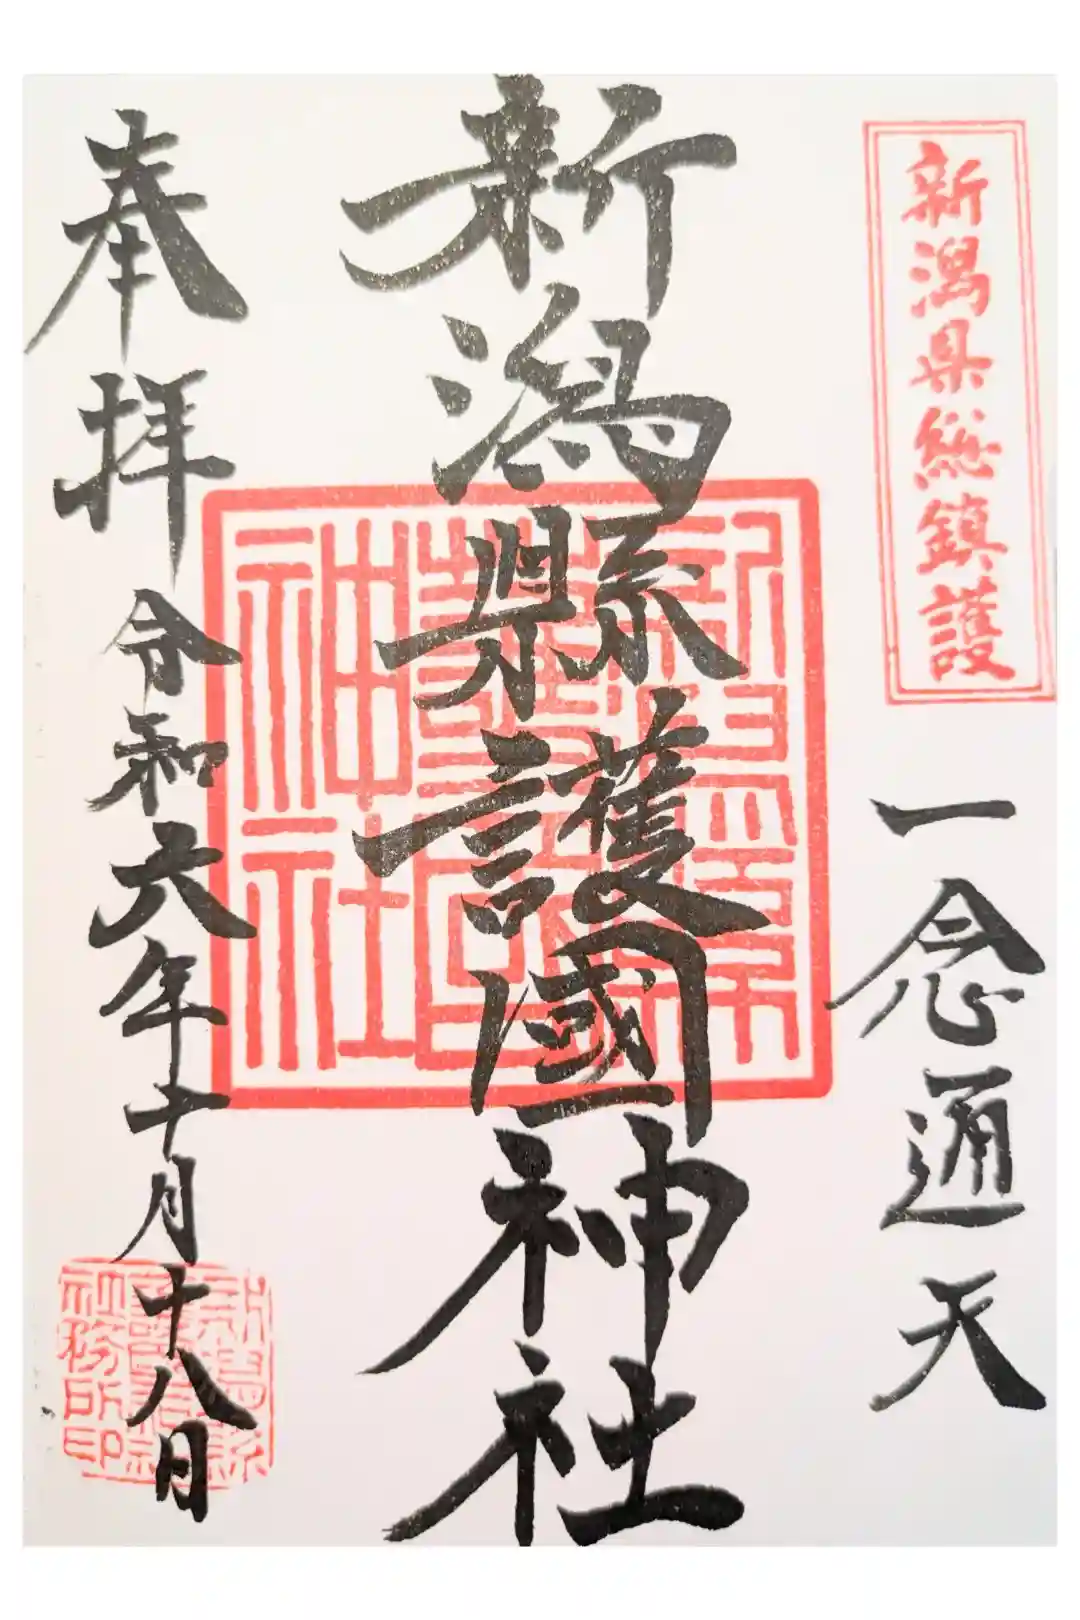 新潟県総鎮護
一念通天
新潟縣護國神社
奉拝
令和六年十月十八日
新潟縣護國神社
社務所印